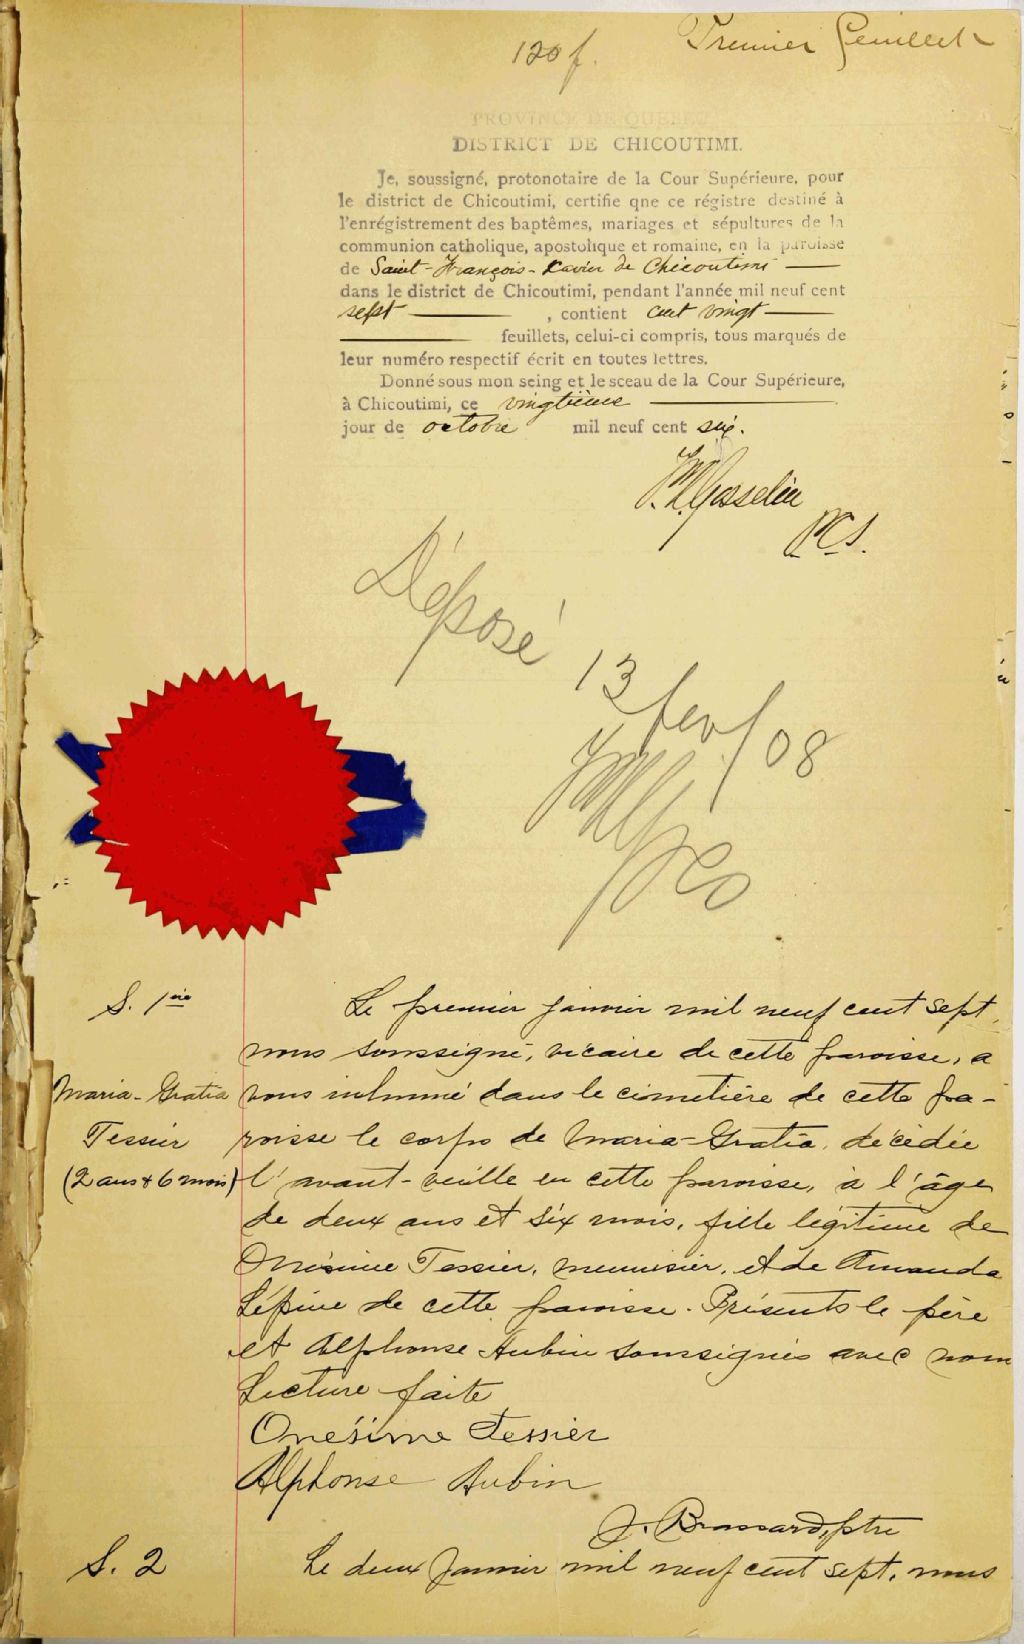 120 f.
Premier feuillet
PROVINCE DE QUEBEC
DISTRICT DE CHICOUTIMI.
Je, soussigné, protonotaire de la Cour Supérieure, pour
le district de Chicoutimi, certifie qne ce régistre destiné à
l'enrégistrement des baptêmes, mariages et sépultures de la
communion catholique, apostolique et romaine, en la paroisse
de Saint-François-Xavier de Chicoutimi
dans le district de Chicoutimi, pendant l'année mil neuf cent
sept , contient cent vingt
feuillets, celui-ci compris, tous marqués de
leur numéro respectif écrit en toutes lettres.
Donné sous mon seing et le sceau de la Cour Supérieure,
à Chicoutimi, ce vingtième
jour de octobre mil neuf cent six.
Gosselin
P.C.S.
Déposé
13 fev/08
S. 1ère
Le premier janvier mil neuf cent sept,
nous soussigné, vicaire de cette paroisse, a
Maria-Gratia
vons inhumé dans le cimetière de cette pa-
Tessier
roisse le corps de Maria-Gratia, décédée
(2 ans & 6 mois)
l'avant-veille en cette paroisse, à l'âge
de deux ans et six mois, fille légitime de
Onésime Tessier, menuisier, et de Amanda
Lépine de cette paroisse. Présents le père
et Alphonse Aubin soussignés avec nous
Lecture faite
Onésime Tessier
Alphonse Aubin
J. Brassard, ptre
S. 2
Le deux janvier mil neuf cent sept, nous